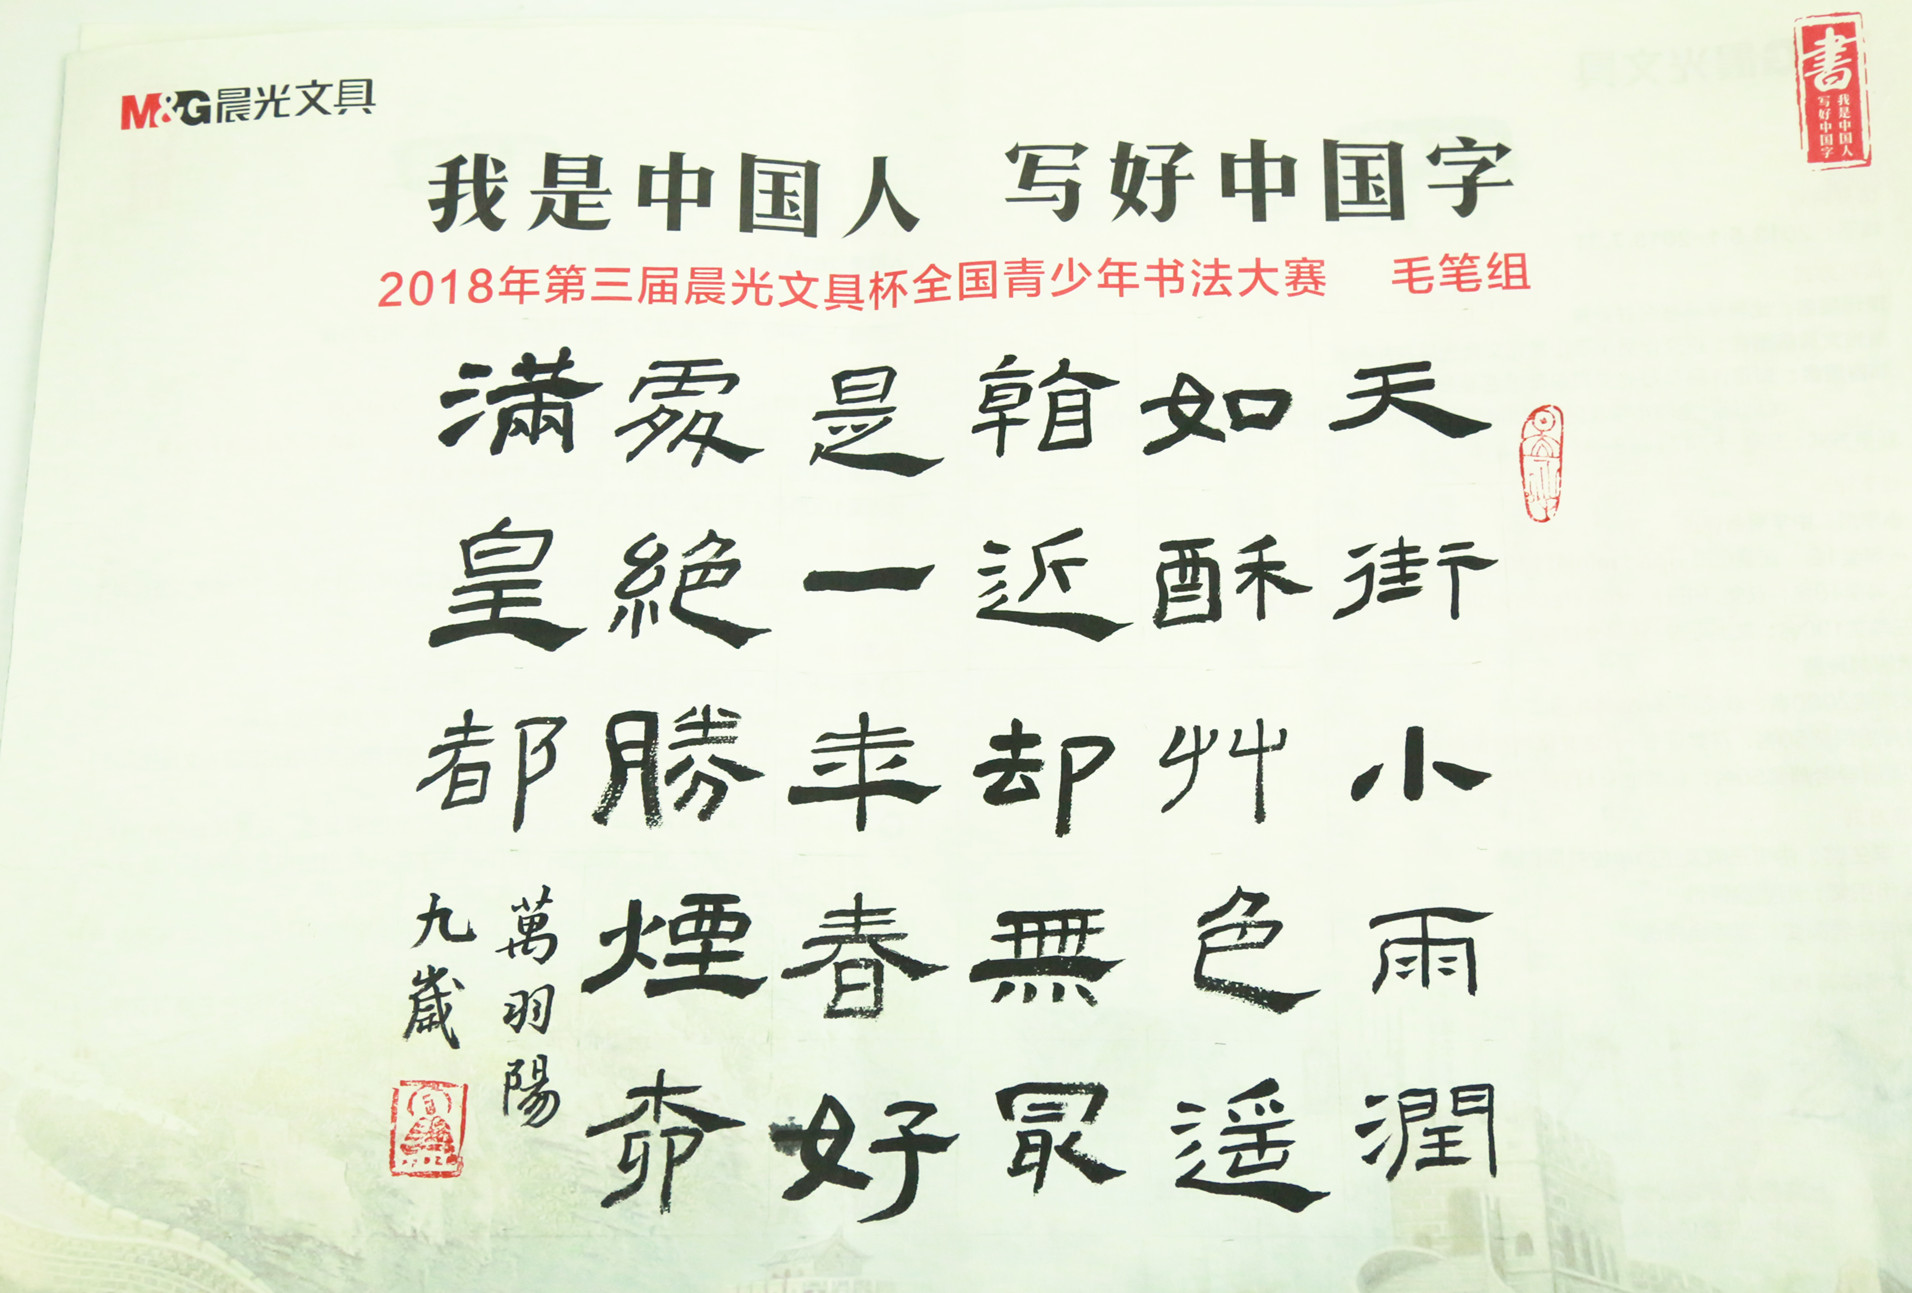 M&G晨光文具
書
我是中国人
写好中国字
我是中国人 写好中国字
2018年第三届晨光文具杯全国青少年书法大赛 毛笔组
天街小雨潤
如酥艸色遥
看近却無最
是一年春好
處絕勝煙柳
滿皇都
萬羽陽
九歲